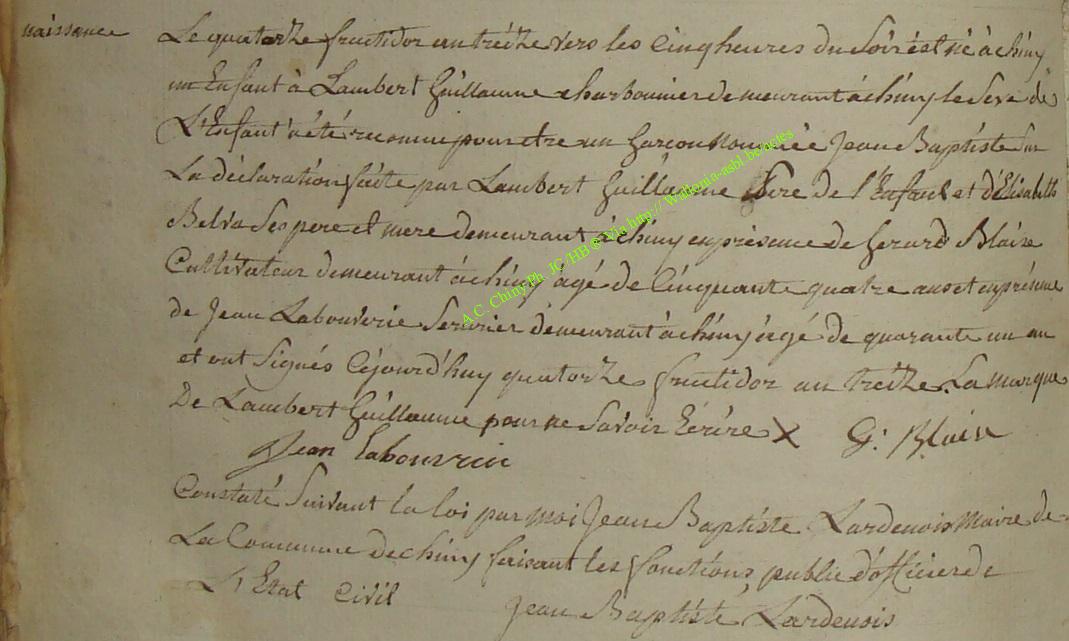 naissance
Le quatorze fructidor an treize vers les Cinq heures du Soir est né à chiny
un Enfant à Lambert Guillaume charbonnier demeurant à chiny le Sexe de
L'Enfant a été reconnu pour etre un garcon Nommée Jean Baptiste Sur
La déclaration faite par Lambert Guillaume Pere de l'Enfant et d'Elisabeth
Belva Ses pere et mere demeurant à chiny en présence de Gerard Blaise
Cultivateur demeurant à chiny âgé de Cinquante quatre ans et en présence
de Jean Labouverie Serurier demeurant à chiny âgé de quarante un an
et ont Signés Cejourd'huy quatorze fructidor an treize La marque
De Lambert Guillaume pour ne Savoir Ecrire X G: Blaise
Jean labouvrie
Constaté Suivant la loi par moi Jean Baptiste Lardenois Maire de
La Commune de chiny faisant les fonctions public d'officier de
L'Etat Civil Jean Baptiste Lardenois
A.C. Chiny Ph JC/HB © Via http:// Wallonia-asbl.be/actes